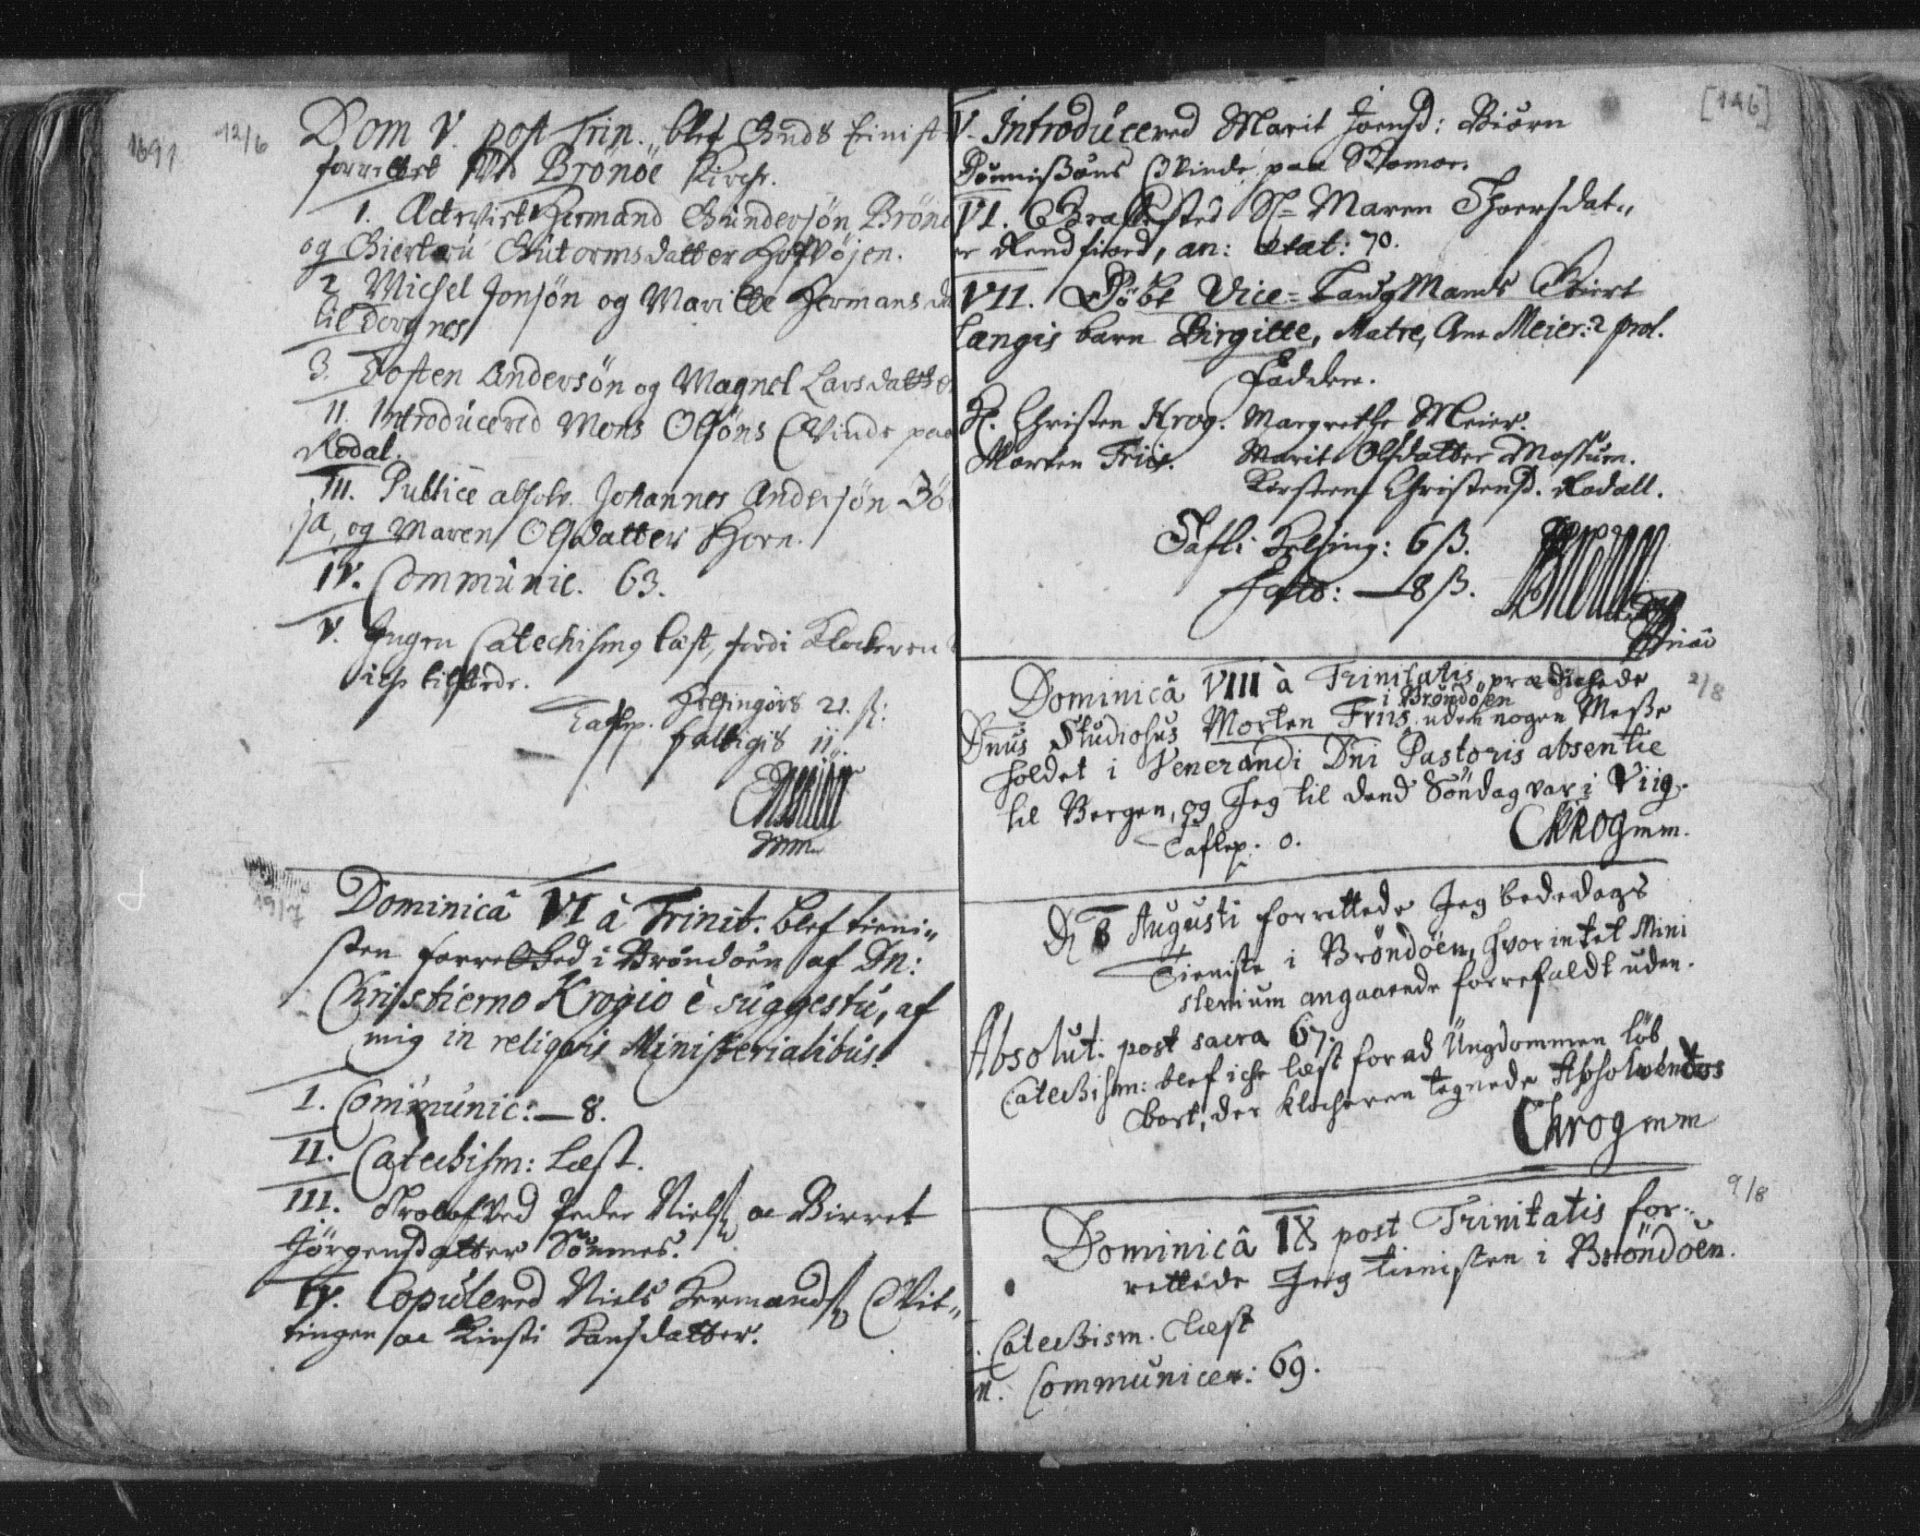 1691 12/6
Dom V. post Trin. blef Guds tinist
forrettet ved Brönöe Kirche.
1. Hermand Gundersön Brönö
og Giertru Gutormsdatter Hofvöjen.
2. Michel Jonsön og Maritte Hermansda
til Torgnes
3. Tosten Andersön og Magnel Larsdatter
II. Introducered Mons Olsöns Qvinde paa
Rodal.
III. Publicè absolv. Johannes Andersön Bö
ja, og Maren Olsdatter Horn.
IV. Communic. 63.
V. Ingen Catechismg læst, fordi Klockeren
iche tilstede.
Taflep. Helsingörs 21. ß:
fattigis 11.
mm
19/7
Dominicâ VI à Trinit. blef tieni„
sten forretted i Bröndöen af Dn:
Christierno Krogio è suggestu, af
mig in reliqvis Ministerialibus.
I. Communic: — 8.
II. Catechism: Læst.
III. Trolofved Peder Niels. oc Birret
Jörgensdatter Sömnes.
IV. Copulered Niels Hermands. Qvit„
tingen oc Kirsti Hansdatter.
[146]
V. Introducered Marit Joensd: Biörn
Qvinde paa
VI. Sl= Maren Thoersdat„
er Rendfiord, an: ætat: 70.
VII. Döbt Vice=Laugmands Giert
Langis barn Birgitte, Matre, Ane Meier: 2 prol.
Faddere.
H. Christen Krog. Margrethe Meier.
Morten Friis. Marit Olsdatter Mossum.
Kirsten Christensd. Rodall.
Tafli Helsing: 6 ß.
— 8 ß.
Dominicâ VIII à Trinitatis prædichede 2/8
i Bröndöen
Dnus Studiosus Morten Friis, uden nogen Messe
holdet i Venerandi Dni Pastoris absentie
til Bergen, og Jeg til dend Söndag var i Viig.
Taflep. 0. CKrog mm.
D 6 Augusti forrettede Jeg bededags
Tieniste i Bröndöen, hvor intet Mini
sterium angaaende forrefaldt uden.
Absolut: post sacra 67.
Catechism: blef iche læst for ad Ungdommen löb
bort, der Klocheren tegnede Absolventes
CKrog mm
9/8
Dominicâ IX post Trinitatis for-
rettede Jeg tienisten i Bröndöen.
Catechism. Læst
II. Communicer: 69.